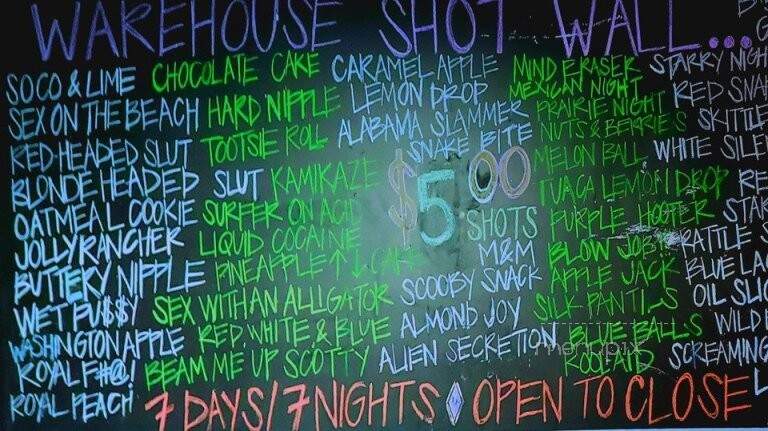 WAREHOUSE SHOT WALL...
SOCO & LIME
SEX ON THE BEACH
RED HEADED SLUT
BLONDE HEADED SLUT
OATMEAL COOKIE
JOLLYRANCHER
BUTTERY NIPPLE
WET PU$$Y
WASHINGTON APPLE
ROYAL F#@!
ROYAL PEACH
CHOCOLATE CAKE
HARD NIPPLE
TOOTSIE ROLL
KAMIKAZE
SURFER ON ACID
LIQUID COCAINE
PINEAPPLE ↑ ↓ CAKE
SEX WITH AN ALLIGATOR
RED, WHITE, & BLUE
BEAM ME UP SCOTTY
CARAMEL APPLE
LEMON DROP
ALABAMA SLAMMER
SNAKE BITE
$5.00
SHOTS
M&M
SCOOBY SNACK
ALMOND JOY
ALIEN SECRETION
MIND ERASER
MEXICAN NIGHT
PRAIRIE NIGHT
NUTS & BERRIES
MELON BALL
TUACA LEMON DROP
PURPLE HOOTER
BLOW JOB!!!
APPLE JACK
SILK PANTIES
BLUE BALLS
KOOLAID
STARRY NIGH
RED SNA
SKITTLE
WHITE SILE
RE
STAR
RATTLE S
BLUE LA
OIL SLI
WILD
SCREAMING
7 DAYS/7 NIGHTS ◊ OPEN TO CLOSE
menupix